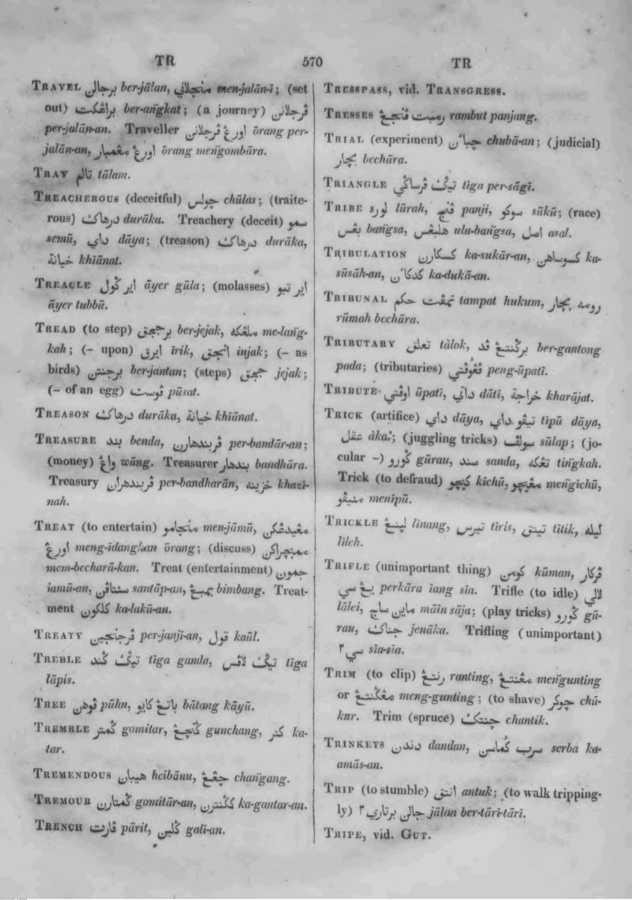 TR 570 TR
TRAVEL برجالن ber-jālan, منجلاني men-jalān-i; (set
out) براڠكت ber-aṅgkat; (a journey) ڤرجلانن
per-jalān-an. Traveller اورڠ ڤرجلانن ōrang per-
jalān-an, اورڠ مڠمبار ōrang meṅgombāra.
TRAY تالم tālam.
TREACHEROUS (deceitful) چولس chūlas; (traite-
rous) درهاك durāka. Treachery (deceit) سمو
semū, داي dāya; (treason) درهاك durāka,
خيانة khiānat.
TREACLE اير گول āyer gūla; (molasses) اير تبو
āyer tubbū.
TREAD (to step) برججق ber-jejak, ملڠكه me-laṅg-
kah; (– upon) ايرق īrik, انجق injak; (– as
birds) برجنتن ber-jantan; (steps) ججق jejak;
(– of an egg) ڤوست pūsat.
TREASON درهاك durāka, خيانة khiānat.
TREASURE بند benda, ڤربندهارن per-bandār-an;
(money) واڠ wāng. Treasurer بندهار bandhāra.
Treasury ڤربندهران per-bandharān, خزينه khazi-
nah.
TREAT (to entertain) منجامو men-jāmū, مڠيدڠكن
اورڠ meng-īdang-kan ōrang; (discuss) ممبچراكن
mem-becharū-kan. Treat (entertainment) جمون
iamū-an, سنتاڤن santāp-an, بمبڠ bimbang. Treat-
ment كلكون ka-lakū-an.
TREATY ڤرجانجين per-janjī-an, قول kaūl.
TREBLE تيگ گند tīga ganda, تيگ لاڤس tīga
lāpis.
TREE ڤوهن pūhn, باتڠ كايو bātang kāyū.
TREMBLE گمتر gomitar, گنچڠ gunchang, كتر ka-
tar.
TREMENDOUS هيبان heibānu, چڠڠ chaṅgang.
TREMOUR گمتارن gomitār-an, كگنترن ka-gantar-an.
TRENCH ڤارت pārit, گلين galī-an.
TRESSPASS, vid. TRANSGRESS.
TRESSES رمبت ڤنجڠ rambut panjang.
TRIAL (experiment) چباٴن chubā-an; (judicial)
بچار bechāra.
TRIANGLE تيگ ڤرساگي tīga per-sāgī.
TRIBE لوره lūrah, ڤنجي panji, سوكو sūkū; (race)
بڠس baṅgsa, هلبڠس ulu-baṅgsa, اصل asal.
TRIBULATION كسكارن ka-sukār-an, كسوساهن ka-
sūsāh-an, كدكاٴن ka-dukā-an.
TRIBUNAL تمڤت حكم tampat hukum, رومه بچار
rūmah bechāra.
TRIBUTARY تعلق tālok, برگنتڠ ڤد ber-gantong
pada; (tributaries) ڤڠوڤتي peng-ūpatī.
TRIBUTE اوڤتي ūpatī, داتي dātī, خراجة kharājat.
TRICK (artifice) داي dāya, تيڤو داي tīpū dāya,
عقل ākal; (juggling tricks) سولڤ sūlap; (jo-
cular –) گورو gūrau, سند sanda, تڠكه tiṅgkah.
Trick (to defraud) كيچو kīchū, مڠيچو meṅgīchū,
منيڤو menīpū.
TRICKLE لينڠ līnang, تيرس tīris, تيتق tītik, ليله
līleh.
TRIFLE (unimportant thing) كومن kūman, ڤركار
يڠ سي perkāra īang sīa. Trifle (to idle) لالي
lālei, ماين ساج māin sāja; (play tricks) گورو gū-
rau, جناك jenāka. Trifling (unimportant)
سي٢ sīa-sīa.
TRIM (to clip) رنتڠ ranting, مڠنتڠ meṅgunting
or مڠگنتڠ meng-gunting; (to shave) چوكر chū-
kur. Trim (spruce) چنتك chantik.
TRINKETS دندن dandan, سرب كماسن serba ka-
amās-an.
TRIP (to stumble) انتق antuk; (to walk tripping-
ly) جالن برتاري٢ jālan ber-tāri-tāri.
TRIPE, vid. GUT.